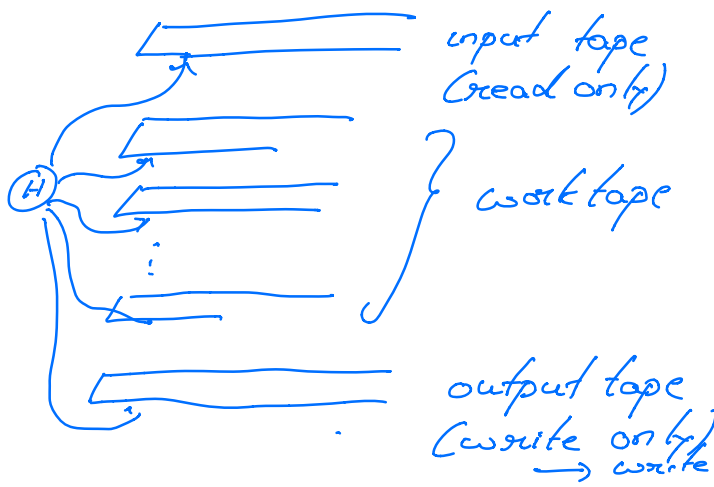 input tape
(read only)
H
work tape
output tape
(write only)
→ write